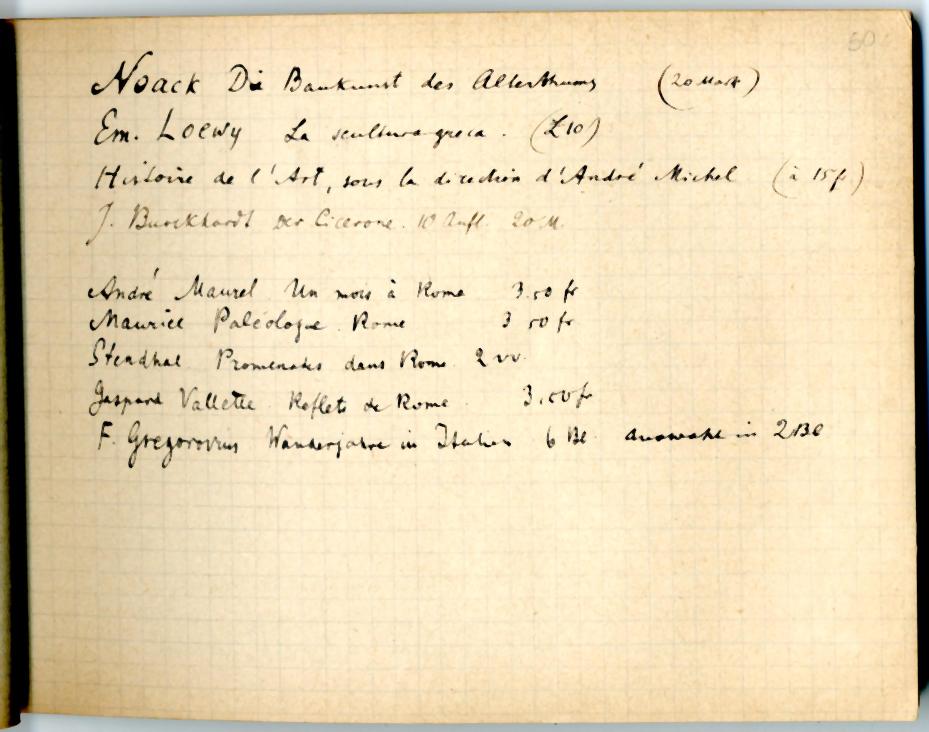 60
Noack Die Baukunst des Alterthums (20 Mark)
Em. Loewy La scultura greca. (£10)
Histoire de l'Art, sous la direction d'André Michel (à 15 f.)
J. Burckhardt Der Cicerone. 10 Aufl. 20 M.
André Maurel Un mois à Rome 3.50 fr
Maurice Paléologue. Rome 3 50 fr
Stendhal Promenades dans Rome. 2 vv.
Gaspard Vallette. Reflets de Rome. 3.50 fr
F. Gregorovius Wanderjahre in Italien 6 Bd. Auswahl in 2 Bd